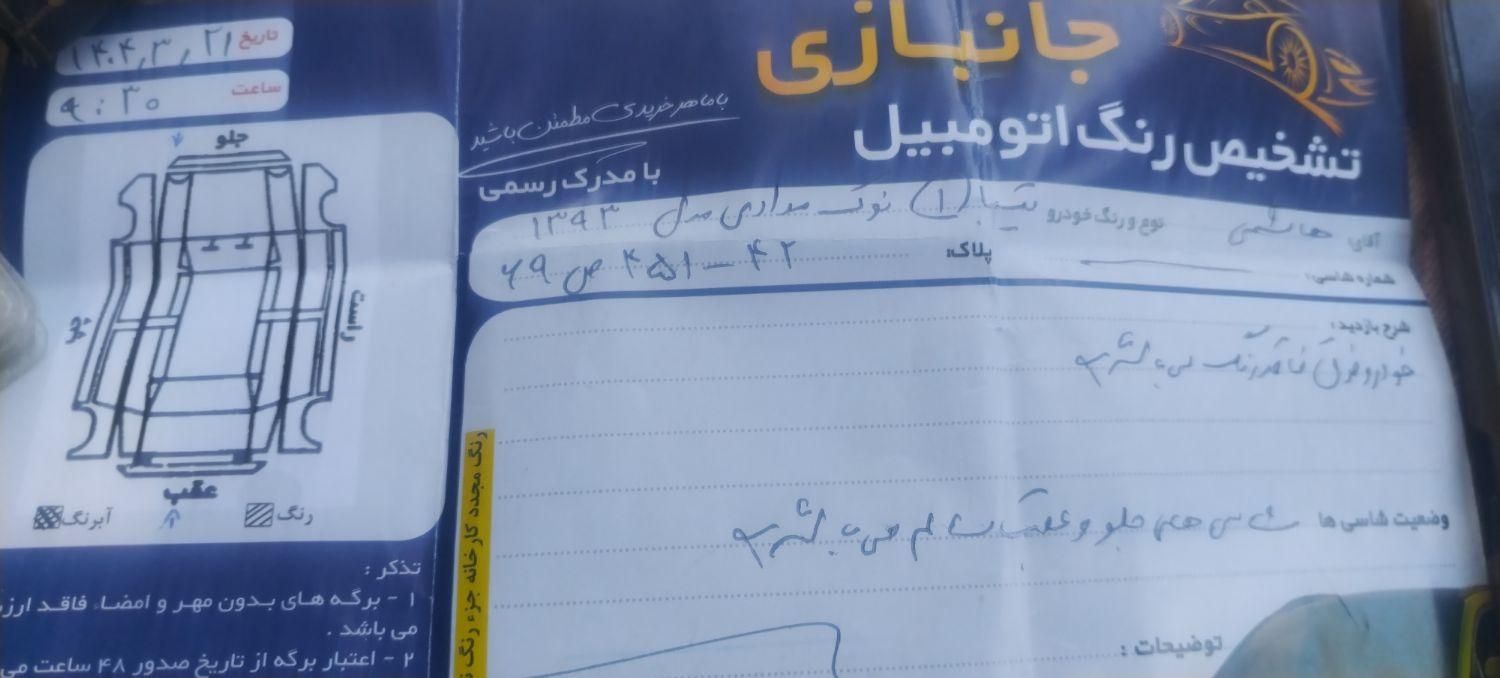 جانبازی
تشخیص رنگ اتومبیل
با ما هر خریدی مطمئن باشید
با مدرک رسمی
تاریخ ۱۴۰۴,۳,۲۱
ساعت ۹:۳۰
آقای هاشمی نوع و رنگ خودرو تیبا (۱) نوک مدادی مدل ۱۳۹۳
شماره شاسی: پلاک: ۴۲ - ۴۵۱ ص ۶۹
شرح بازدید:
خودرو فوق فاقد رنگ می باشد
وضعیت شاسی ها شاسی های جلو و عقب سالم می باشد
توضیحات:
جلو
راست
چپ
عقب
رنگ آبرنگ
رنگ مجدد کارخانه جزء رنگ
تذکر:
۱ - برگه های بدون مهر و امضاء فاقد
می باشد.
۲ - اعتبار برگه از تاریخ صدور ۴۸ ساعت می